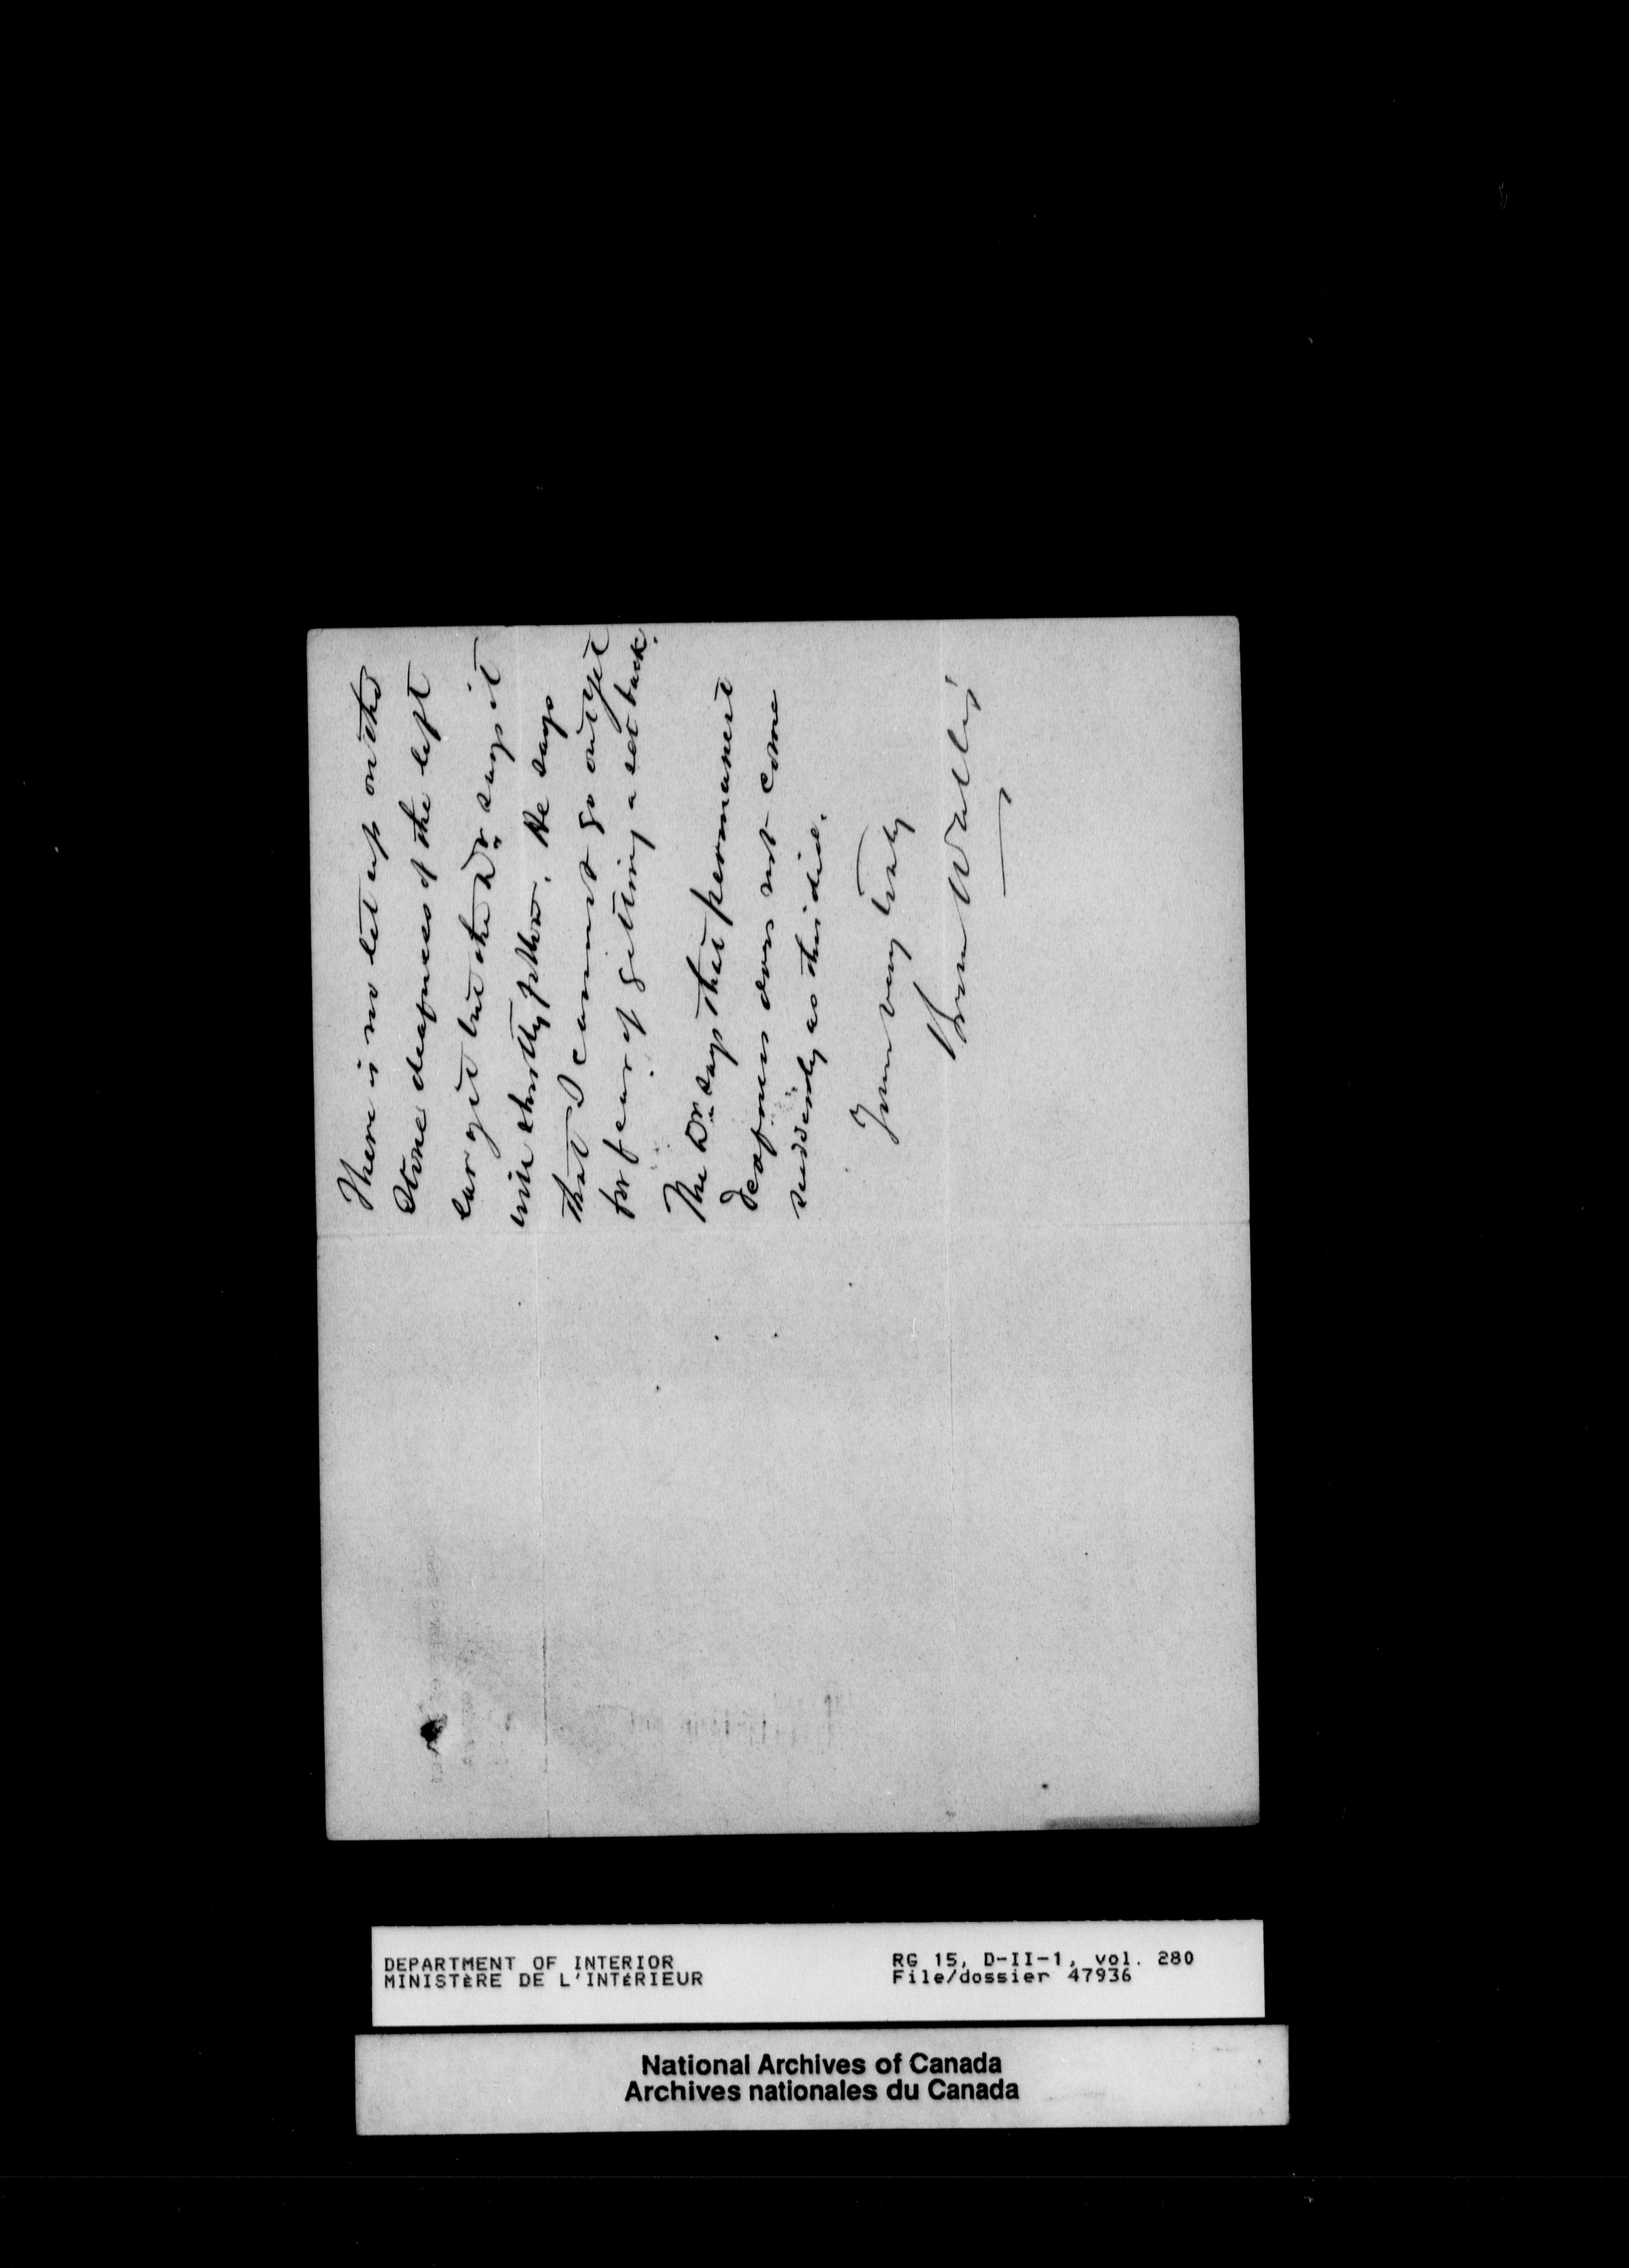 There is no let up on the
Stone deafness of the left
ear yet but the Dr says it
will shortly follow. He says
that I cannot go out yet
for fear of getting a set back.
The Dr says that permanent
deafness does not come
suddenly as this did.
Yours very truly
Wallis
DEPARTMENT OF INTERIOR
MINISTÈRE DE L'INTÉRIEUR
RG 15, D-II-1, vol. 280
File/dossier 47936
National Archives of Canada
Archives nationales du Canada